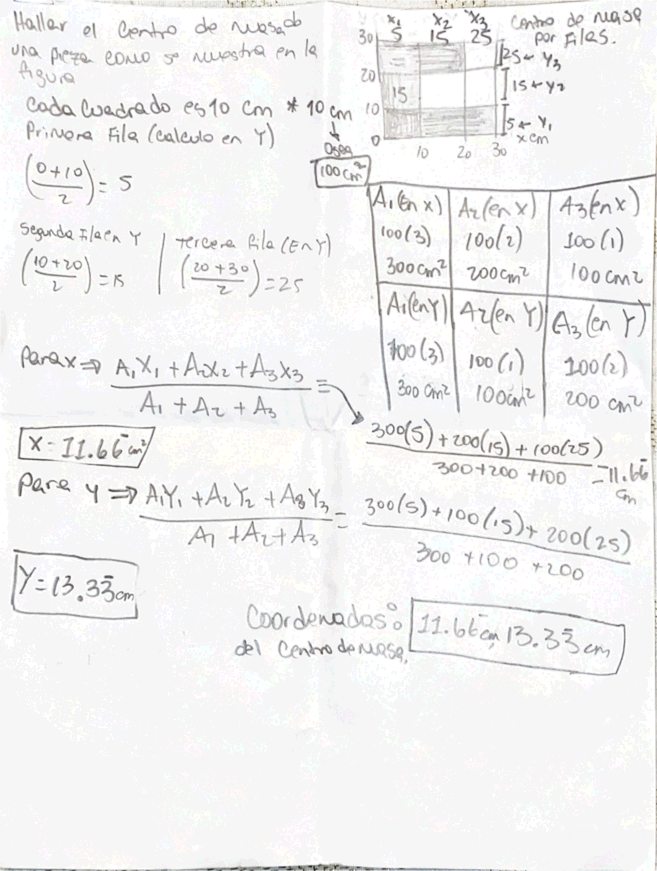 Hallar el Centro de masa de
una pieza como se muestra en la
figura
Cada Cuadrado es 10 cm * 10 cm
Osea
100 cm²
Primera Fila (calculo en Y)
(0+10 / 2) = 5
Segunda Fila en Y | tercera fila (En Y)
(10+20 / 2) = 15 | (20+30 / 2) = 25
X₁ X₂ X₃
5 15 25
Centro de masa
por Filas.
30
20
10
0
15
10 20 30 x cm
25 ← Y₃
15 ← Y₂
5 ← Y₁
A₁(En X) A₂(en X) A3(en X)
100(3) 100(2) 100(1)
300cm² 200cm² 100cm²
A₁(en Y) A2(en Y) A₃(en Y)
100(3) 100(1) 100(2)
300 cm² 100cm² 200 cm²
Para x ⇒ A₁X₁ + A₂X₂ + A₃X₃ / A₁ + A₂ + A₃ =
300(5) + 200(15) + 100(25) / 300+200+100 = 11.66 cm
X = 11.66 cm²
Para y ⇒ A₁Y₁ + A₂Y₂ + A₃Y₃ / A₁ + A₂ + A₃ = 300(5) + 100(15) + 200(25) / 300 + 100 + 200
Y = 13.33 cm
Coordenadas:
del Centro de masa.
11.66 cm, 13.33 cm